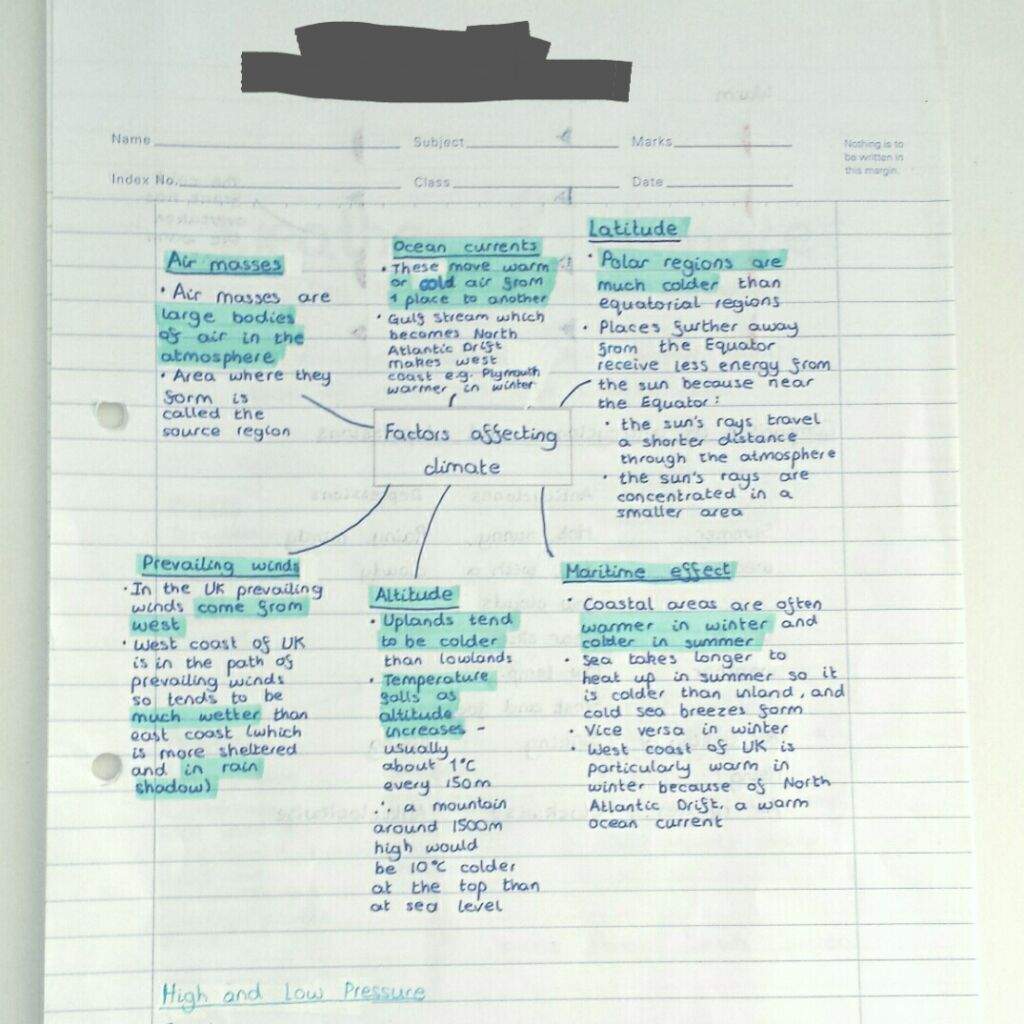 Name
Subject
Marks
Nothing is to
be written in
this margin.
Index No.
Class
Date
Air masses
• Air masses are
large bodies
of air in the
atmosphere
• Area where they
form is
called the
source region
Ocean currents
• These move warm
or cold air from
1 place to another
• Gulf stream which
becomes North
Atlantic Drift
makes west
coast e.g. Plymouth
warmer in winter
Latitude
• Polar regions are
much colder than
equatorial regions
• Places further away
from the Equator
receive less energy from
the sun because near
the Equator:
• the sun's rays travel
a shorter distance
through the atmosphere
• the sun's rays are
concentrated in a
smaller area
Factors affecting
climate
Prevailing winds
• In the UK prevailing
winds come from
west
• West coast of UK
is in the path of
prevailing winds
so tends to be
much wetter than
east coast (which
is more sheltered
and in rain
shadow)
Altitude
• Uplands tend
to be colder
than lowlands
• Temperature
falls as
altitude
increases -
usually
about 1°C
every 150m
∴ a mountain
around 1500m
high would
be 10°C colder
at the top than
at sea level
Maritime effect
• Coastal areas are often
warmer in winter and
colder in summer
• Sea takes longer to
heat up in summer so it
is colder than inland, and
cold sea breezes form
• Vice versa in winter
• West coast of UK is
particularly warm in
winter because of North
Atlantic Drift, a warm
ocean current
High and Low Pressure